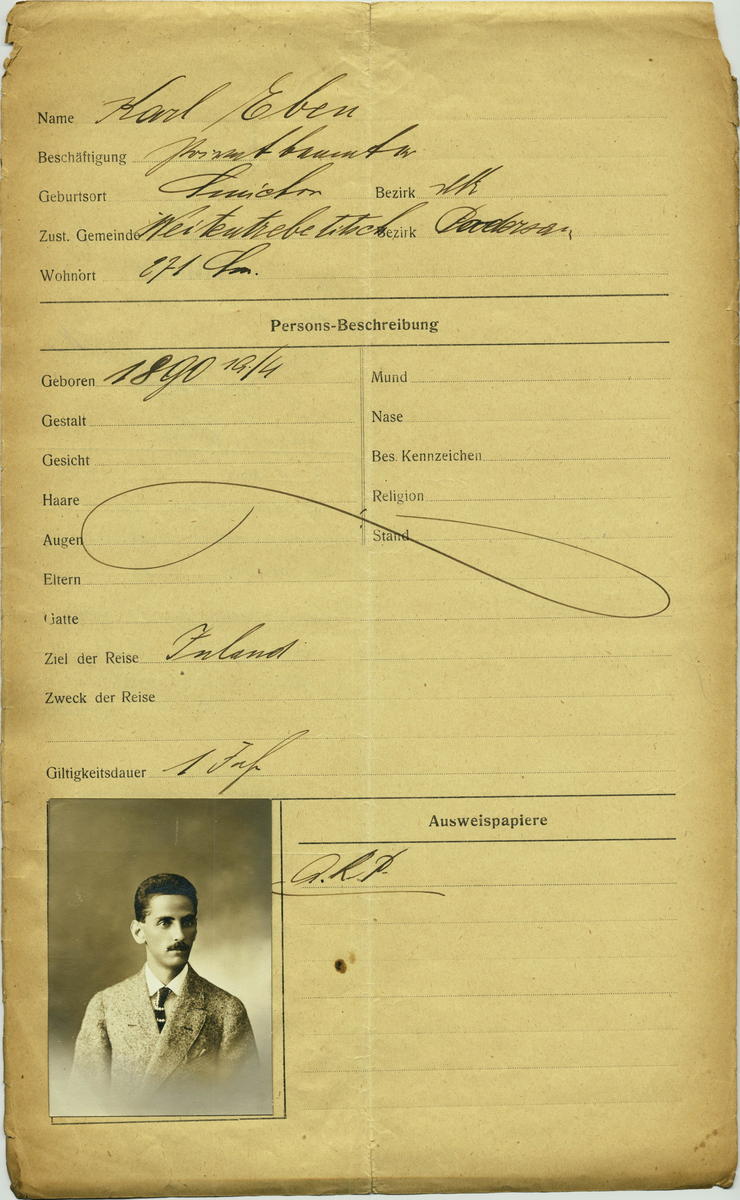 Name Karl Eben
Beschäftigung Privatbeamter
Geburtsort Smichov Bezirk
Zust. Gemeinde Weitentrebetitsch Bezirk Podersam
Wohnort 271 Sm.
Persons-Beschreibung
Geboren 1890 19/4 Mund
Gestalt Nase
Gesicht Bes. Kennzeichen
Haare Religion
Augen Stand
Eltern
Gatte
Ziel der Reise Inland
Zweck der Reise
Giltigkeitsdauer 1 Jahr
Ausweispapiere